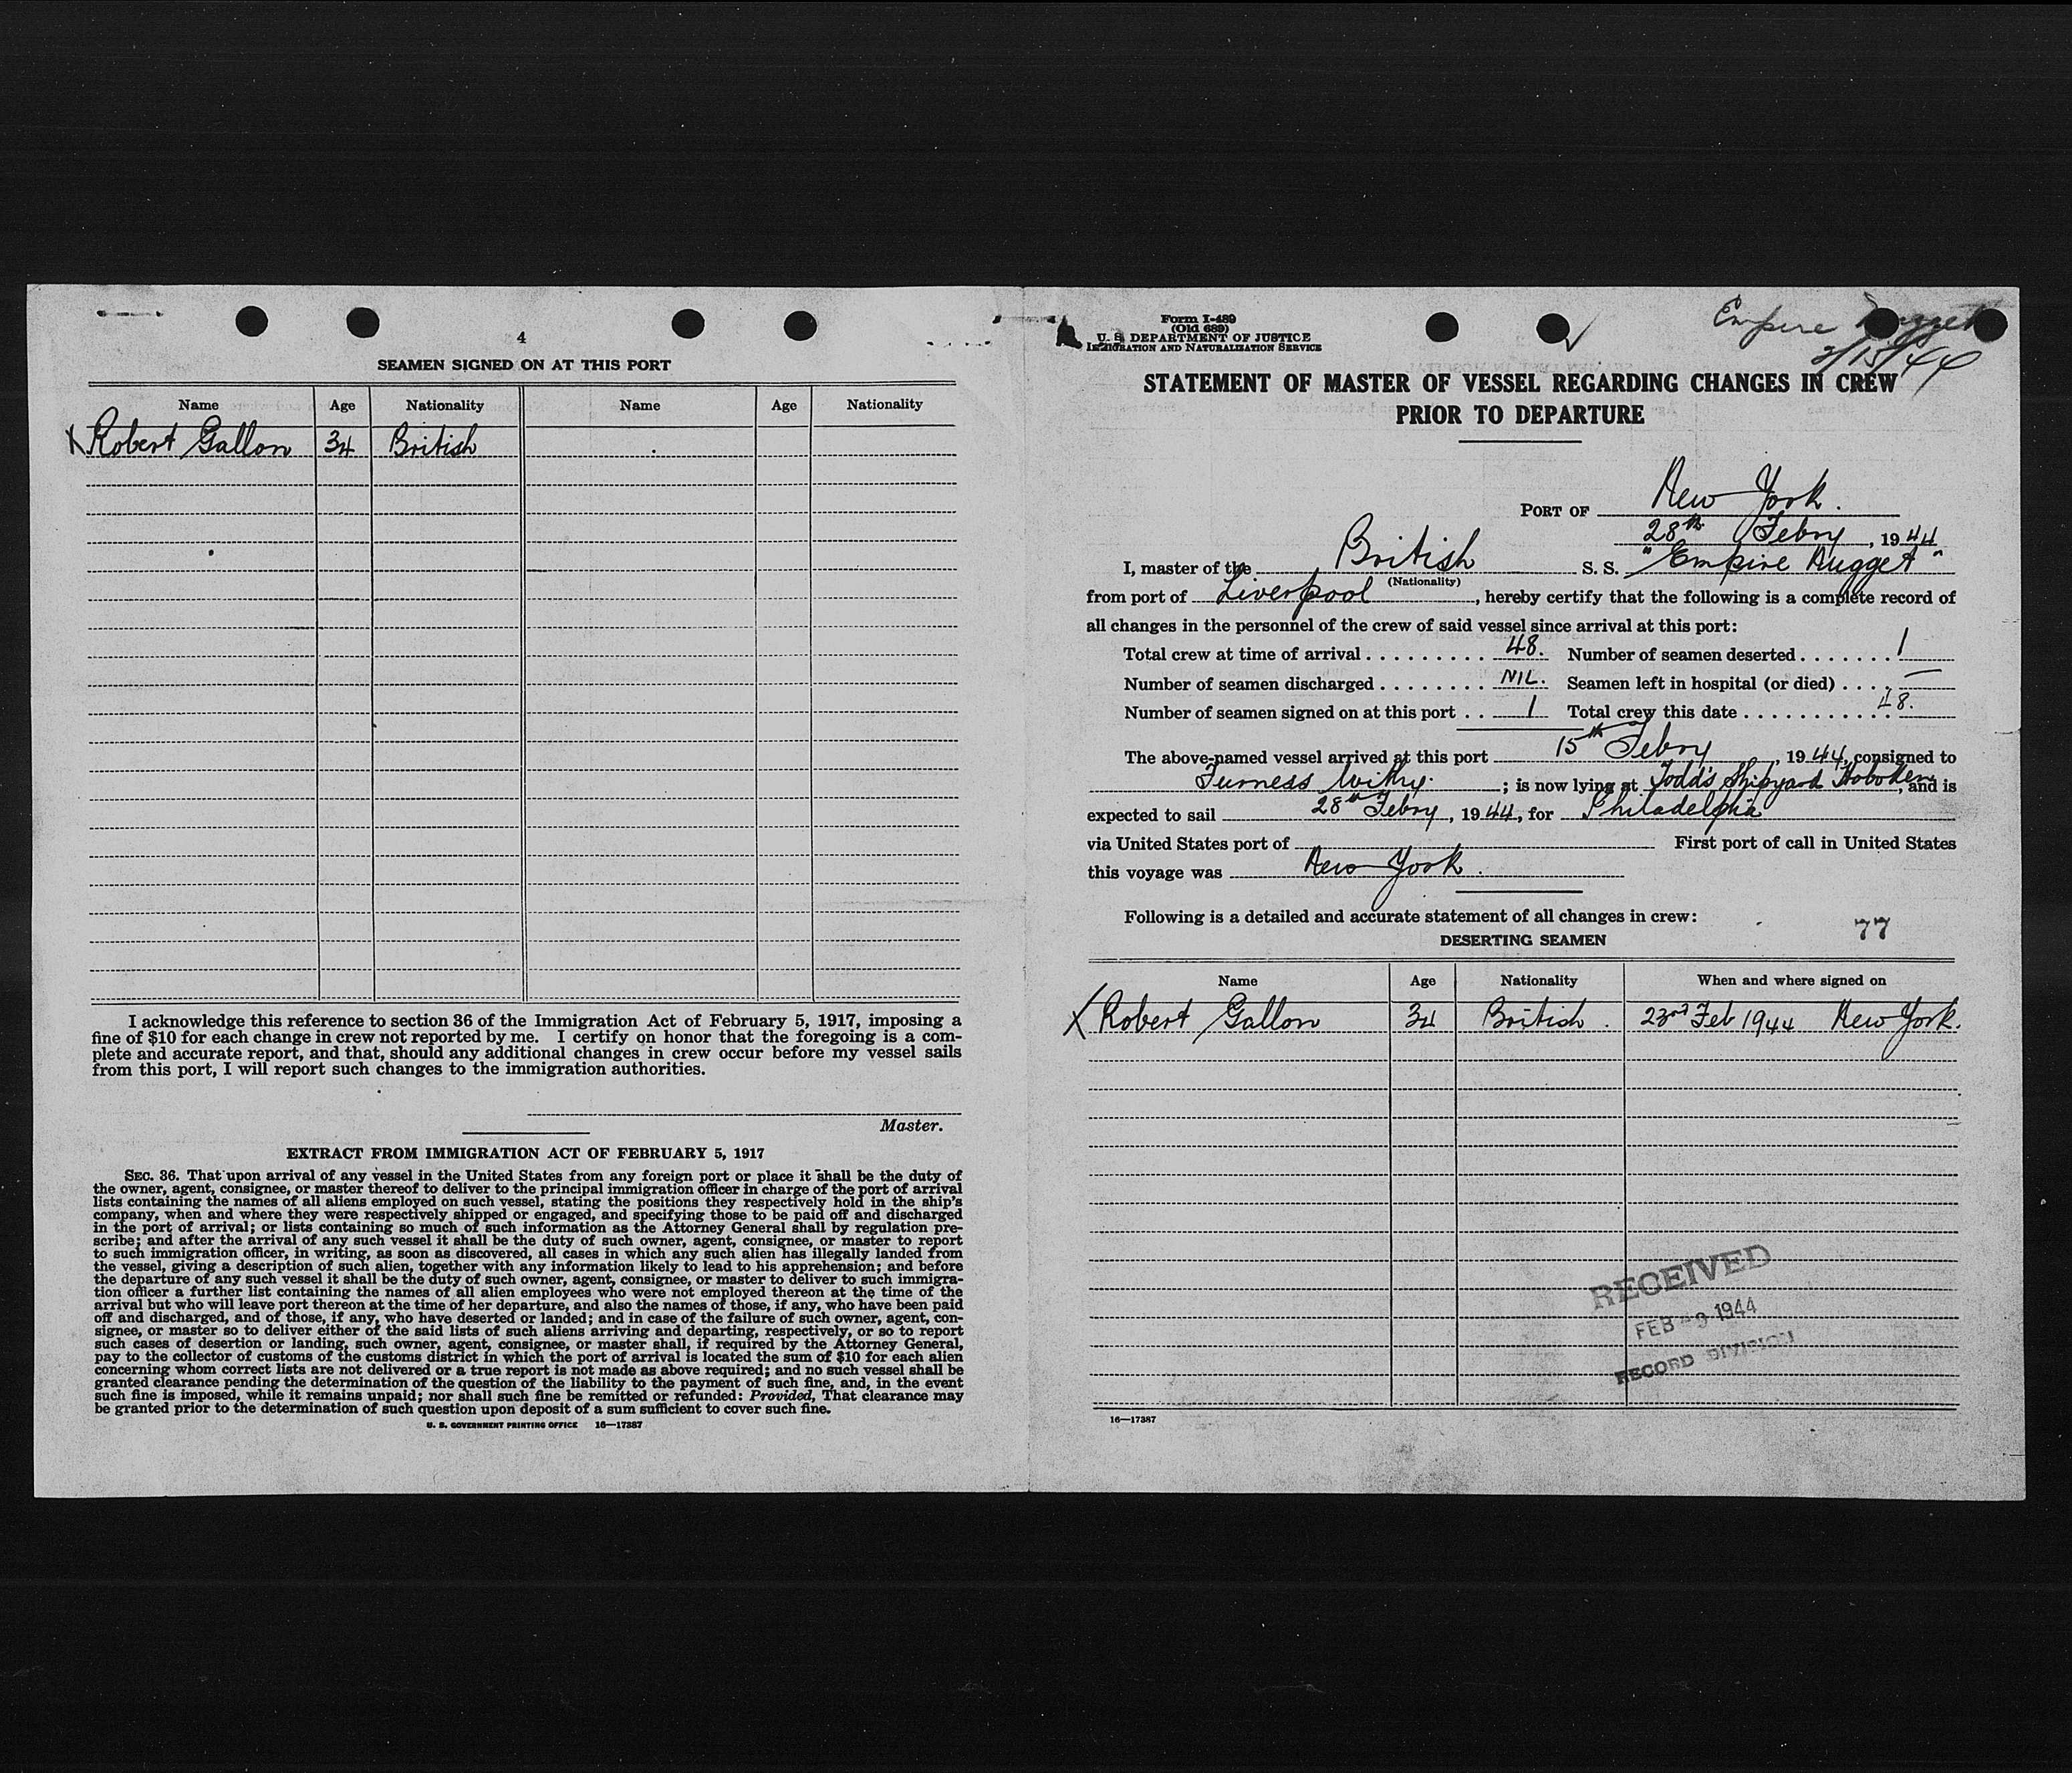 4
SEAMEN SIGNED ON AT THIS PORT
Name Age Nationality Name Age Nationality
X Robert Gallon 34 British
I acknowledge this reference to section 36 of the Immigration Act of February 5, 1917, imposing a
fine of $10 for each change in crew not reported by me. I certify on honor that the foregoing is a com-
plete and accurate report, and that, should any additional changes in crew occur before my vessel sails
from this port, I will report such changes to the immigration authorities.
Master.
EXTRACT FROM IMMIGRATION ACT OF FEBRUARY 5, 1917
SEC. 36. That upon arrival of any vessel in the United States from any foreign port or place it shall be the duty of
the owner, agent, consignee, or master thereof to deliver to the principal immigration officer in charge of the port of arrival
lists containing the names of all aliens employed on such vessel, stating the positions they respectively hold in the ship's
company, when and where they were respectively shipped or engaged, and specifying those to be paid off and discharged
in the port of arrival; or lists containing so much of such information as the Attorney General shall by regulation pre-
scribe; and after the arrival of any such vessel it shall be the duty of such owner, agent, consignee, or master to report
to such immigration officer, in writing, as soon as discovered, all cases in which any such alien has illegally landed from
the vessel, giving a description of such alien, together with any information likely to lead to his apprehension; and before
the departure of any such vessel it shall be the duty of such owner, agent, consignee, or master to deliver to such immigra-
tion officer a further list containing the names of all alien employees who were not employed thereon at the time of the
arrival but who will leave port thereon at the time of her departure, and also the names of those, if any, who have been paid
off and discharged, and of those, if any, who have deserted or landed; and in case of the failure of such owner, agent, con-
signee, or master so to deliver either of the said lists of such aliens arriving and departing, respectively, or so to report
such cases of desertion or landing, such owner, agent, consignee, or master shall, if required by the Attorney General,
pay to the collector of customs of the customs district in which the port of arrival is located the sum of $10 for each alien
concerning whom correct lists are not delivered or a true report is not made as above required; and no such vessel shall be
granted clearance pending the determination of the question of the liability to the payment of such fine, and, in the event
such fine is imposed, while it remains unpaid; nor shall such fine be remitted or refunded: Provided, That clearance may
be granted prior to the determination of such question upon deposit of a sum sufficient to cover such fine.
U. S. GOVERNMENT PRINTING OFFICE 16—17387
Form I-489
(Old 689)
U. S. DEPARTMENT OF JUSTICE
IMMIGRATION AND NATURALIZATION SERVICE
Empire Nugget
2/15/44
STATEMENT OF MASTER OF VESSEL REGARDING CHANGES IN CREW
PRIOR TO DEPARTURE
PORT OF New York.
28th Febry, 1944
I, master of the British S. S. "Empire Nugget"
(Nationality)
from port of Liverpool, hereby certify that the following is a complete record of
all changes in the personnel of the crew of said vessel since arrival at this port:
Total crew at time of arrival 48. Number of seamen deserted 1
Number of seamen discharged NIL. Seamen left in hospital (or died) —
Number of seamen signed on at this port 1 Total crew this date 48.
The above-named vessel arrived at this port 15th Febry, 1944, consigned to
Furness Withy. ; is now lying at Todd's Shipyard Hoboken, and is
expected to sail 28th Febry, 1944, for Philadelphia
via United States port of First port of call in United States
this voyage was New York.
Following is a detailed and accurate statement of all changes in crew:
77
DESERTING SEAMEN
Name Age Nationality When and where signed on
X Robert Gallon 34 British. 23rd Feb 1944 New York.
RECEIVED
FEB -9 1944
RECORD DIVISION
16—17387